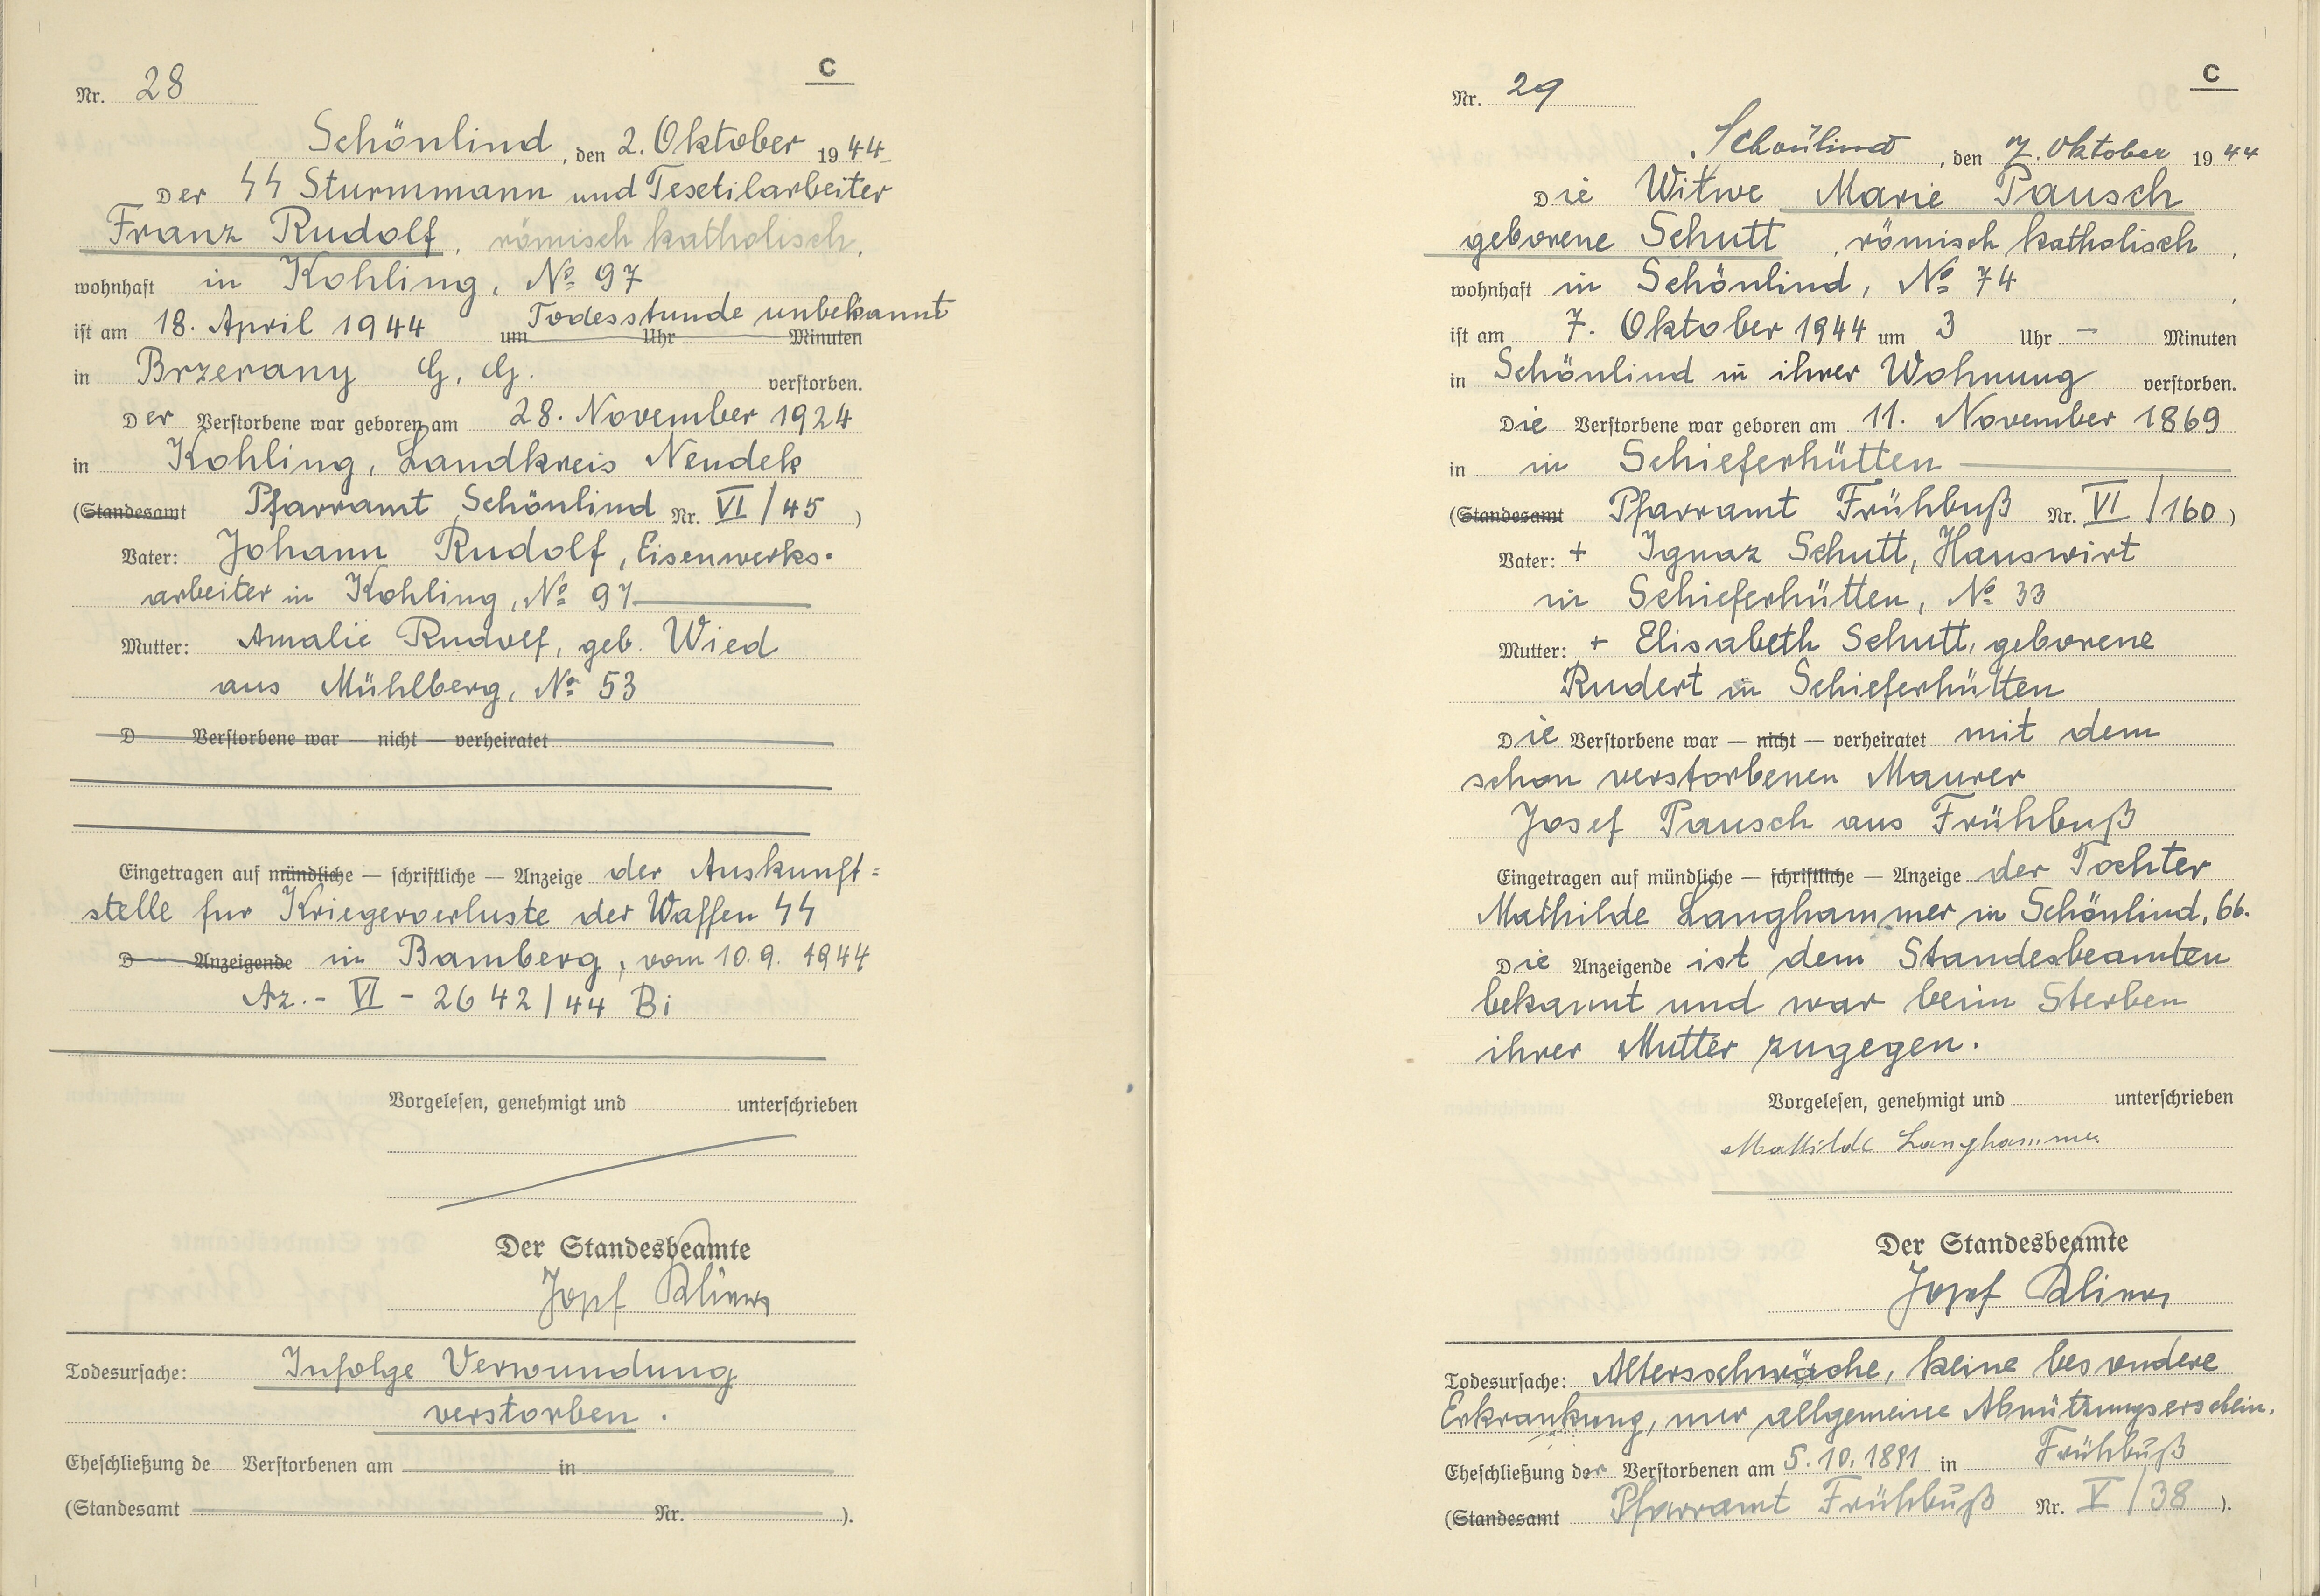 C
Nr. 28
Schönlind, den 2. Oktober 1944
Der ϟϟ Sturmmann und Tesetilarbeiter
Franz Rudolf, römisch katholisch,
wohnhaft in Kohling, No 97
ist am 18. April 1944 um Todesstunde unbekannt Uhr Minuten
in Brzerany G. G. verstorben.
Der Verstorbene war geboren am 28. November 1924
in Kohling, Landkreis Neudek
(Standesamt Pfarramt Schönlind Nr. VI/45)
Vater: Johann Rudolf, Eisenwerks-
arbeiter in Kohling, No 97
Mutter: Amalie Rudolf, geb. Wied
aus Mühlberg, No 53
D Verstorbene war — nicht — verheiratet
Eingetragen auf mündliche — schriftliche — Anzeige der Auskunft=
stelle fur Kriegerverluste der Waffen ϟϟ
D Anzeigende in Bamberg, vom 10.9. 1944
Az.- VI - 2642/44 Bi
Vorgelesen, genehmigt und unterschrieben
Der Standesbeamte
Josef
Todesursache: Infolge Verwundung
verstorben.
Eheschließung de Verstorbenen am in
(Standesamt Nr. ).
C
Nr. 29
Schönlind, den 7. Oktober 1944
Die Witwe Marie Pausch
geborene Schutt, römisch katholisch,
wohnhaft in Schönlind, No 74,
ist am 7. Oktober 1944 um 3 Uhr — Minuten
in Schönlind in ihrer Wohnung verstorben.
Die Verstorbene war geboren am 11. November 1869
in in Schieferhütten
(Standesamt Pfarramt Frühbuß Nr. VI/160)
Vater: + Ignaz Schutt, Hauswirt
in Schieferhütten, No 33
Mutter: + Elisabeth Schutt, geborene
Rudert in Schieferhütten
Die Verstorbene war — nicht — verheiratet mit dem
schon verstorbenen Maurer
Josef Pausch aus Frühbuß
Eingetragen auf mündliche — schriftliche — Anzeige der Tochter
Mathilde Langhammer in Schönlind, 66.
Die Anzeigende ist dem Standesbeamten
bekannt und war beim Sterben
ihrer Mutter zugegen.
Vorgelesen, genehmigt und unterschrieben
Mathilde Langhammer
Der Standesbeamte
Josef
Todesursache: Altersschwäche, keine besondere
Erkrankung, nur allgemeine Abnützungserschein.
Eheschließung der Verstorbenen am 5.10.1891 in Frühbuß
(Standesamt Pfarramt Frühbuß Nr. V/38).